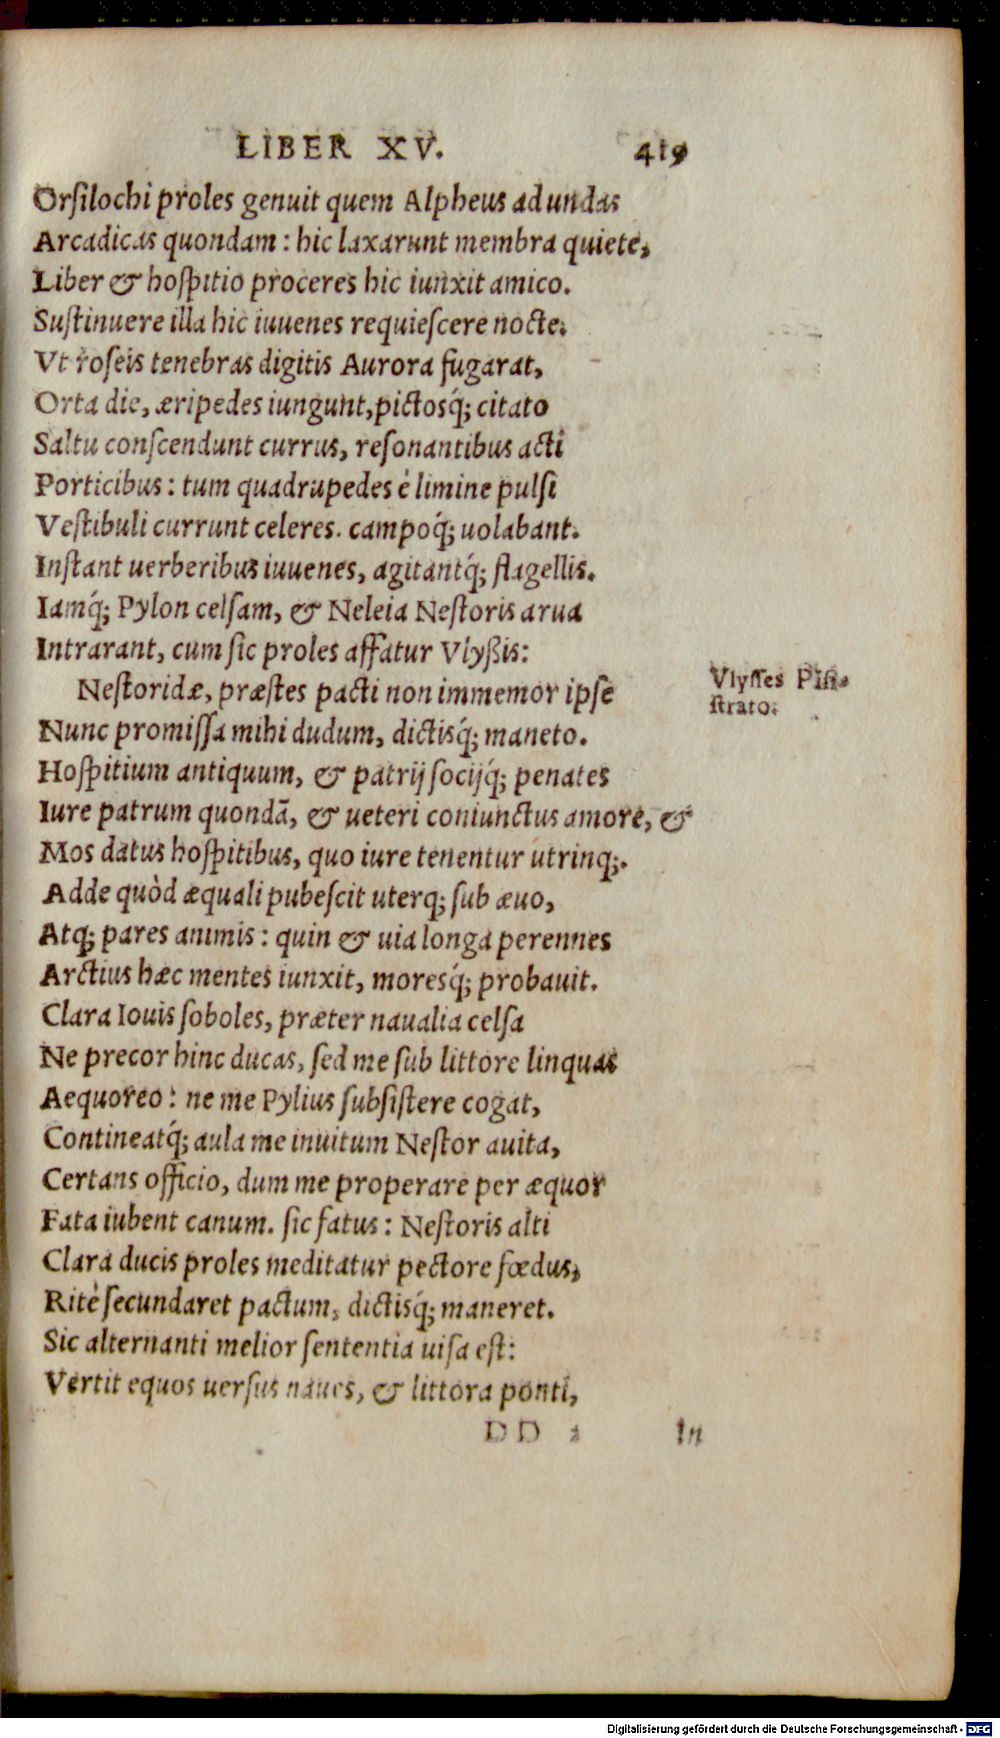 LIBER XV. 419
Orſilochi proles genuit quem Alpheus ad undas
Arcadicas quondam : hic laxarunt membra quiete,
Liber & hoſpitio proceres hic iunxit amico.
Suſtinuere illa hic iuuenes requieſcere nocte.
Vt roſeis tenebras digitis Aurora fugarat,
Orta die, æripedes iungunt, pictosq́; citato
Saltu conſcendunt currus, reſonantibus acti
Porticibus : tum quadrupedes è limine pulſi
Veſtibuli currunt celeres. campoq́; uolabant.
Inſtant uerberibus iuuenes, agitantq́; flagellis.
Iamq́; Pylon celſam, & Neleia Neſtoris arua
Intrarant, cum ſic proles affatur Vlyßis:
Neſtoridæ, præſtes pacti non immemor ipſe
Vlyſſes Piſi-
ſtrato.
Nunc promiſſa mihi dudum, dictisq́; maneto.
Hoſpitium antiquum, & patrij ſocijq́; penates
Iure patrum quondã, & ueteri coniunctus amore, &
Mos datus hoſpitibus, quo iure tenentur utrinq;.
Adde quòd æquali pubeſcit uterq; ſub æuo,
Atq; pares animis : quin & uia longa perennes
Arctius hæc mentes iunxit, moresq́; probauit.
Clara Iouis ſoboles, præter naualia celſa
Ne precor hinc ducas, ſed me ſub littore linquas
Aequoreo : ne me Pylius ſubſiſtere cogat,
Contineatq́; aula me inuitum Neſtor auita,
Certans officio, dum me properare per æquor
Fata iubent canum. ſic fatus : Neſtoris alti
Clara ducis proles meditatur pectore fœdus,
Ritè ſecundaret pactum, dictisq́; maneret.
Sic alternanti melior ſententia uiſa eſt:
Vertit equos uerſus naues, & littora ponti,
DD 2 In
Digitalisierung gefördert durch die Deutsche Forschungsgemeinschaft - DFG